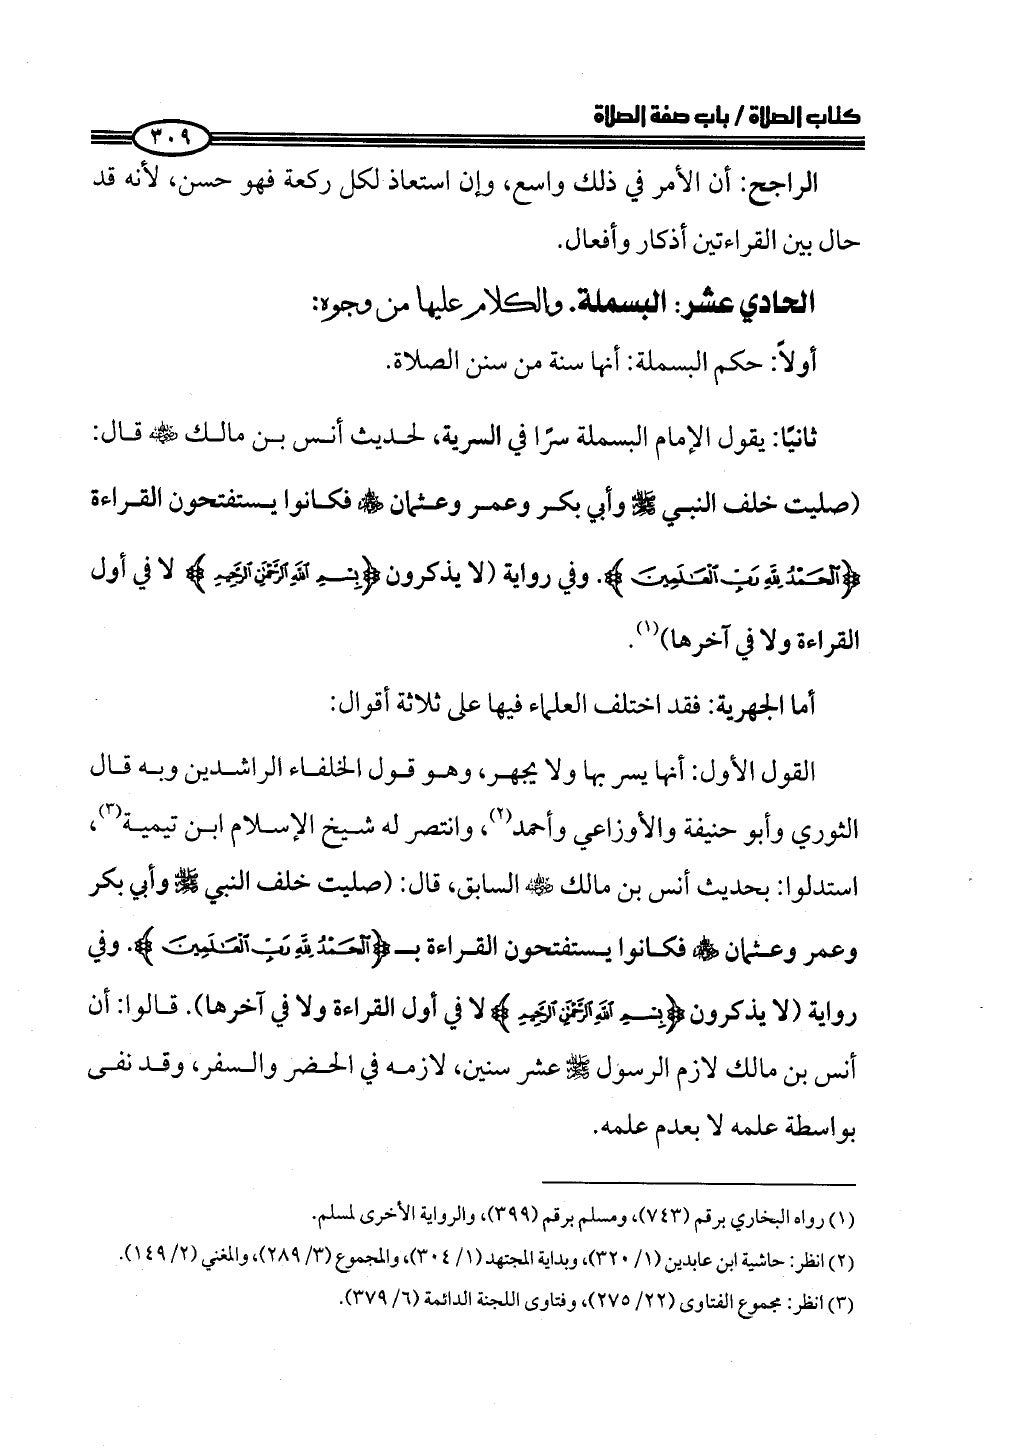 كتاب الصلاة / باب صفة الصلاة
٣٠٩
الراجح: أن الأمر في ذلك واسع، وإن استعاذ لكل ركعة فهو حسن، لأنه قد
حال بين القراءتين أذكار وأفعال.
الحادي عشر: البسملة. والكلام عليها من وجوه:
أولاً: حكم البسملة: أنها سنة من سنن الصلاة.
ثانيًا: يقول الإمام البسملة سرًا في السرية، لحديث أنس بن مالك ﵁ قال:
(صليت خلف النبي ﷺ وأبي بكر وعمر وعثمان ﵃ فكانوا يستفتحون القراءة
﴿ٱلْحَمْدُ لِلَّهِ رَبِّ ٱلْعَـٰلَمِينَ﴾. وفي رواية (لا يذكرون ﴿بِسْمِ ٱللَّهِ ٱلرَّحْمَٰنِ ٱلرَّحِيمِ﴾ لا في أول
القراءة ولا في آخرها)(١).
أما الجهرية: فقد اختلف العلماء فيها على ثلاثة أقوال:
القول الأول: أنها يسر بها ولا يجهر، وهو قول الخلفاء الراشدين وبه قال
الثوري وأبو حنيفة والأوزاعي وأحمد(٢)، وانتصر له شيخ الإسلام ابن تيمية(٣)،
استدلوا: بحديث أنس بن مالك ﵁ السابق، قال: (صليت خلف النبي ﷺ وأبي بكر
وعمر وعثمان ﵃ فكانوا يستفتحون القراءة بـ ﴿ٱلْحَمْدُ لِلَّهِ رَبِّ ٱلْعَـٰلَمِينَ﴾. وفي
رواية (لا يذكرون ﴿بِسْمِ ٱللَّهِ ٱلرَّحْمَٰنِ ٱلرَّحِيمِ﴾ لا في أول القراءة ولا في آخرها). قالوا: أن
أنس بن مالك لازم الرسول ﷺ عشر سنين، لازمه في الحضر والسفر، وقد نفى
بواسطة علمه لا بعدم علمه.
(١) رواه البخاري برقم (٧٤٣)، ومسلم برقم (٣٩٩)، والرواية الأخرى لمسلم.
(٢) انظر: حاشية ابن عابدين (١/ ٣٢٠)، وبداية المجتهد (١/ ٣٠٤)، والمجموع (٣/ ٢٨٩)، والمغني (٢/ ١٤٩).
(٣) انظر: مجموع الفتاوى (٢٢/ ٢٧٥)، وفتاوى اللجنة الدائمة (٦/ ٣٧٩).